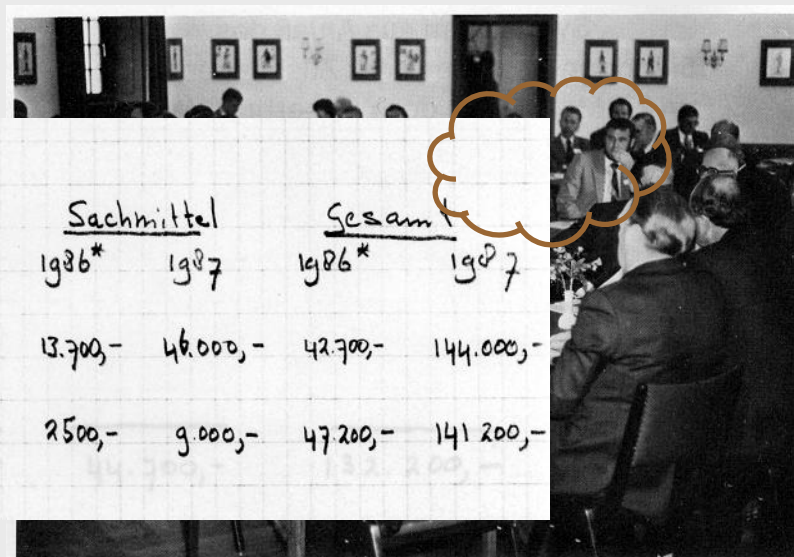 Sachmittel Gesamt
1986* 1987 1986* 1987
13.700,- 46.000,- 42.700,- 144.000,-
2500,- 9.000,- 47.200,- 141 200,-
44.700,- 132.200,-